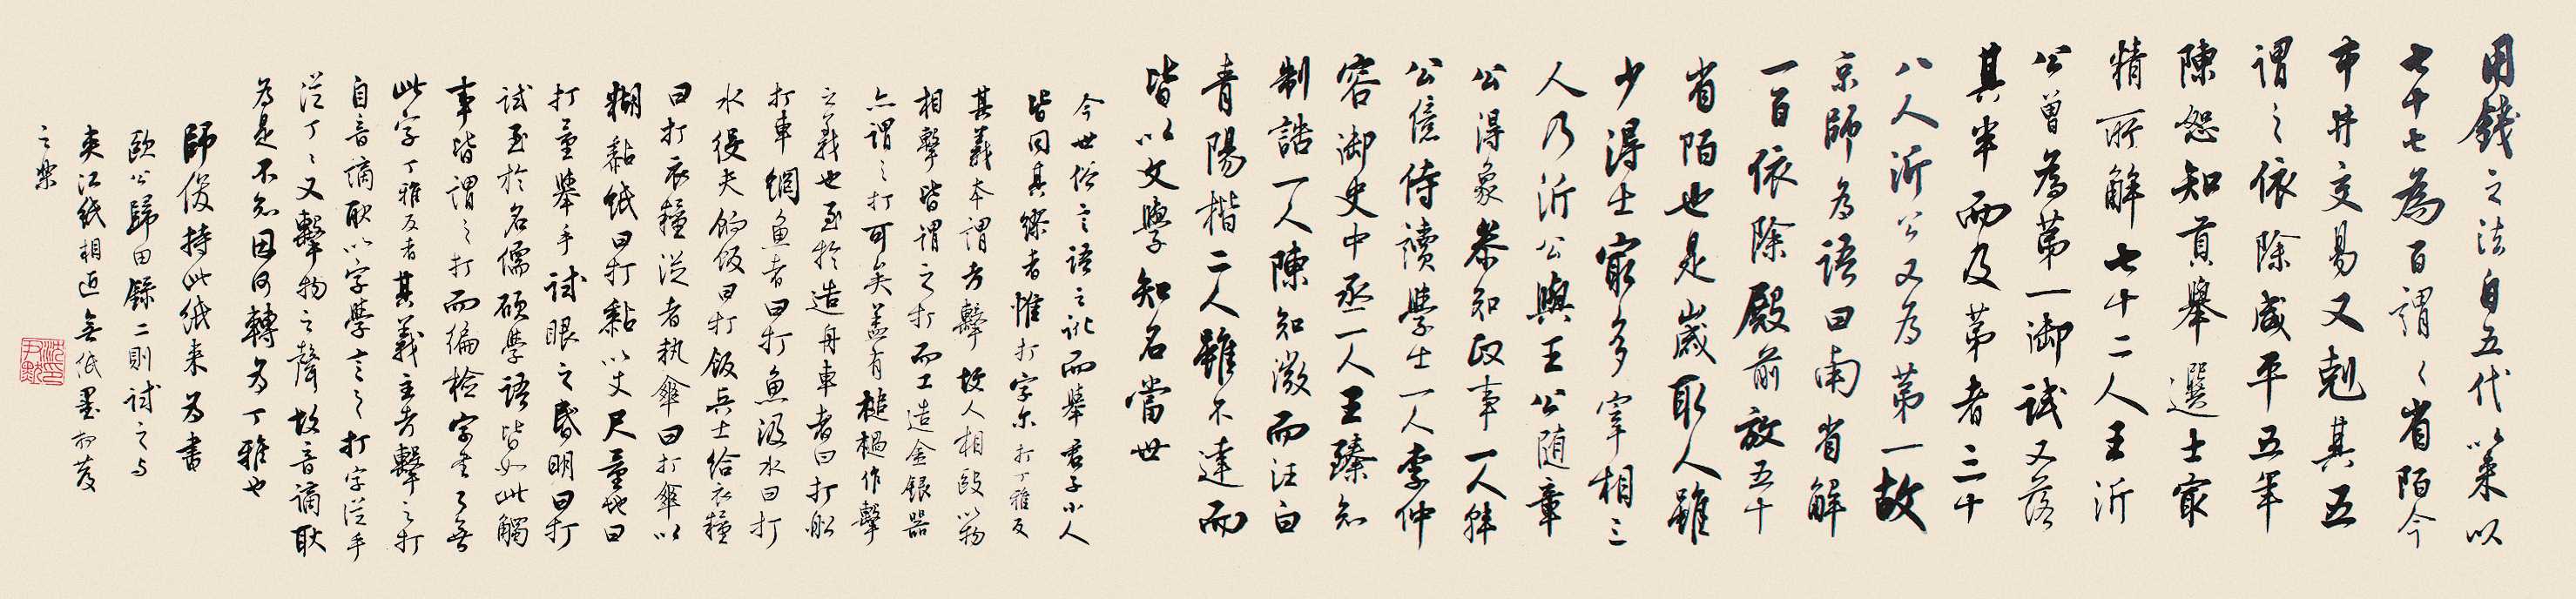 用錢之法自五代以來以
七十七為百謂之省陌今
市井交易又剋其五
謂之依除咸平五年
陳恕知貢舉選士最
精所解七十二人王沂
公曾為第一御試又落
其半而及第者三十
八人沂公又為第一故
京師為語曰南省解
一百依除殿前放五十
省陌也是歲取人雖
少得士最多宰相三
人乃沂公與王公隨章
公得象參知政事一人韓
公億侍讀學士一人李仲
容御史中丞一人王臻知
制誥一人陳知微而汪白
青陽楷二人雖不達而
皆以文學知名當世
今世俗言語之訛而舉君子小人
皆同其繆者惟打字尔打丁雅反
其義本謂考擊故人相毆以物
相擊皆謂之打而工造金銀器
亦謂之打可矣蓋有槌檛作擊
之義也至於造舟車者曰打船
打車網魚者曰打魚汲水曰打
水役夫餉飯曰打飯兵士給衣糧
曰打衣糧從者執傘曰打傘以
糊黏紙曰打黏以丈尺量地曰
打量舉手試眼之昏明曰打
試至於名儒碩學語皆如此觸
事皆謂之打而徧檢字書了無
此字丁雅反者其義主考擊之打
自音謫耿以字學言之打字從手
從丁丁又擊物之聲故音謫耿
為是不知因何轉為丁雅也
師俊持此紙來為書
歐公歸田錄二則試之与
夾江紙相近無紙墨相發
之樂
沈尹默印